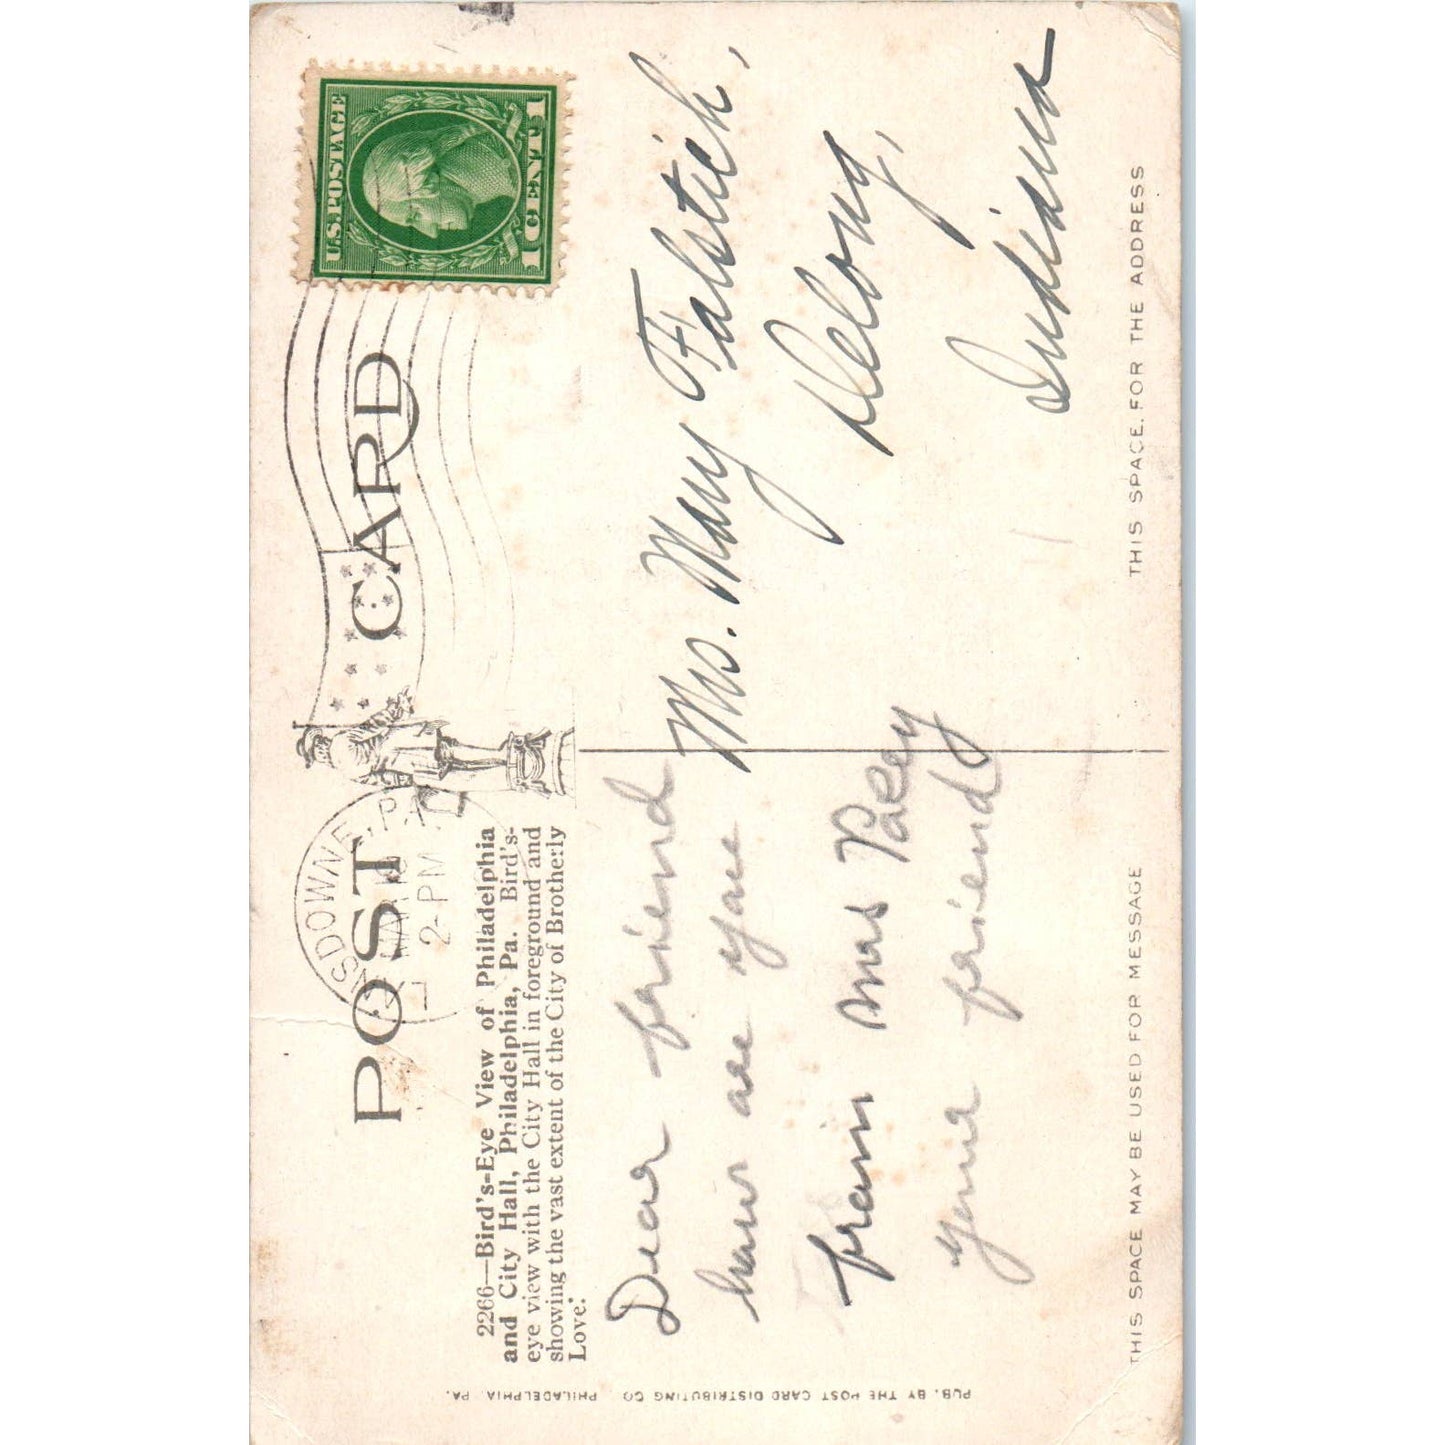 POST CARD
U.S. POSTAGE
1 CENT 1
LANSDOWNE, PA.
MAR
2-PM
2266—Bird's-Eye View of Philadelphia
and City Hall, Philadelphia, Pa. Bird's-
eye view with the City Hall in foreground and
showing the vast extent of the City of Brotherly
Love.
Dear friend
how are you
from mrs
your friend
Mrs. Mary Falstich,
Delong,
Indiana
THIS SPACE MAY BE USED FOR MESSAGE
THIS SPACE FOR THE ADDRESS
PUB. BY THE POST CARD DISTRIBUTING CO PHILADELPHIA, PA.